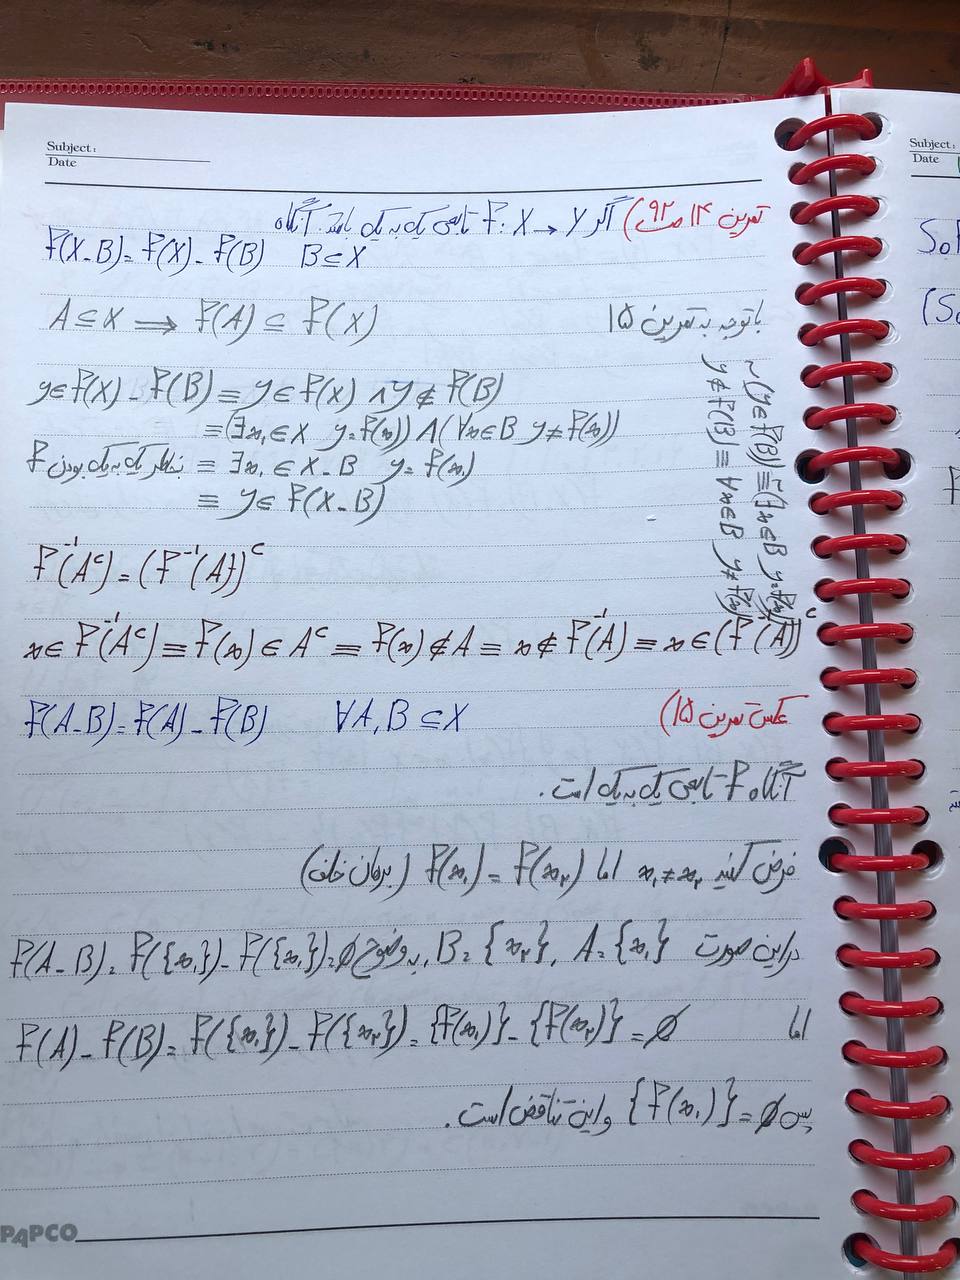 Subject:
Date
تمرین ۱۴ ص ۹۲) اگر f: X → Y تابعی یک به یک باشد. آنگاه
f(X-B) = f(X) - f(B)   B ⊆ X
با توجه به تمرین ۱۵   A ⊆ X ⟹ f(A) ⊆ f(X)
y ∈ f(X) - f(B) ≡ y ∈ f(X) ∧ y ∉ f(B)
≡ (∃x₁ ∈ X  y = f(x₁)) ∧ (∀x ∈ B  y ≠ f(x))
بخاطر یک به یک بودن f ≡ ∃x₁ ∈ X - B  y = f(x₁)
≡ y ∈ f(X - B)
~(y ∈ f(B)) ≡ ~(∃x ∈ B  y = f(x))
y ∉ f(B) ≡ ∀x ∈ B  y ≠ f(x)
f⁻¹(Aᶜ) = (f⁻¹(A))ᶜ
x ∈ f⁻¹(Aᶜ) ≡ f(x) ∈ Aᶜ ≡ f(x) ∉ A ≡ x ∉ f⁻¹(A) ≡ x ∈ (f⁻¹(A))ᶜ
عکس تمرین ۱۵)   f(A-B) = f(A) - f(B)   ∀A, B ⊆ X
آنگاه f تابعی یک به یک است.
فرض کنید x₁ ≠ x₂ اما f(x₁) = f(x₂) (برهان خلف)
در این صورت A = {x₁} , B = {x₂} , بوضوح f(A-B) = f({x₁}) - f({x₁}) = ∅
اما f(A) - f(B) = f({x₁}) - f({x₂}) = {f(x₁)} - {f(x₂)} = ∅
پس {f(x₁)} = ∅ و این تناقض است.
PAPCO
Subject:
Date